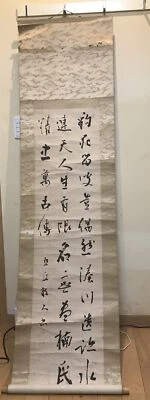 豹死留皮豈偶然湊川遺跡水
連天人生有限名無盡楠氏
精忠萬古傳